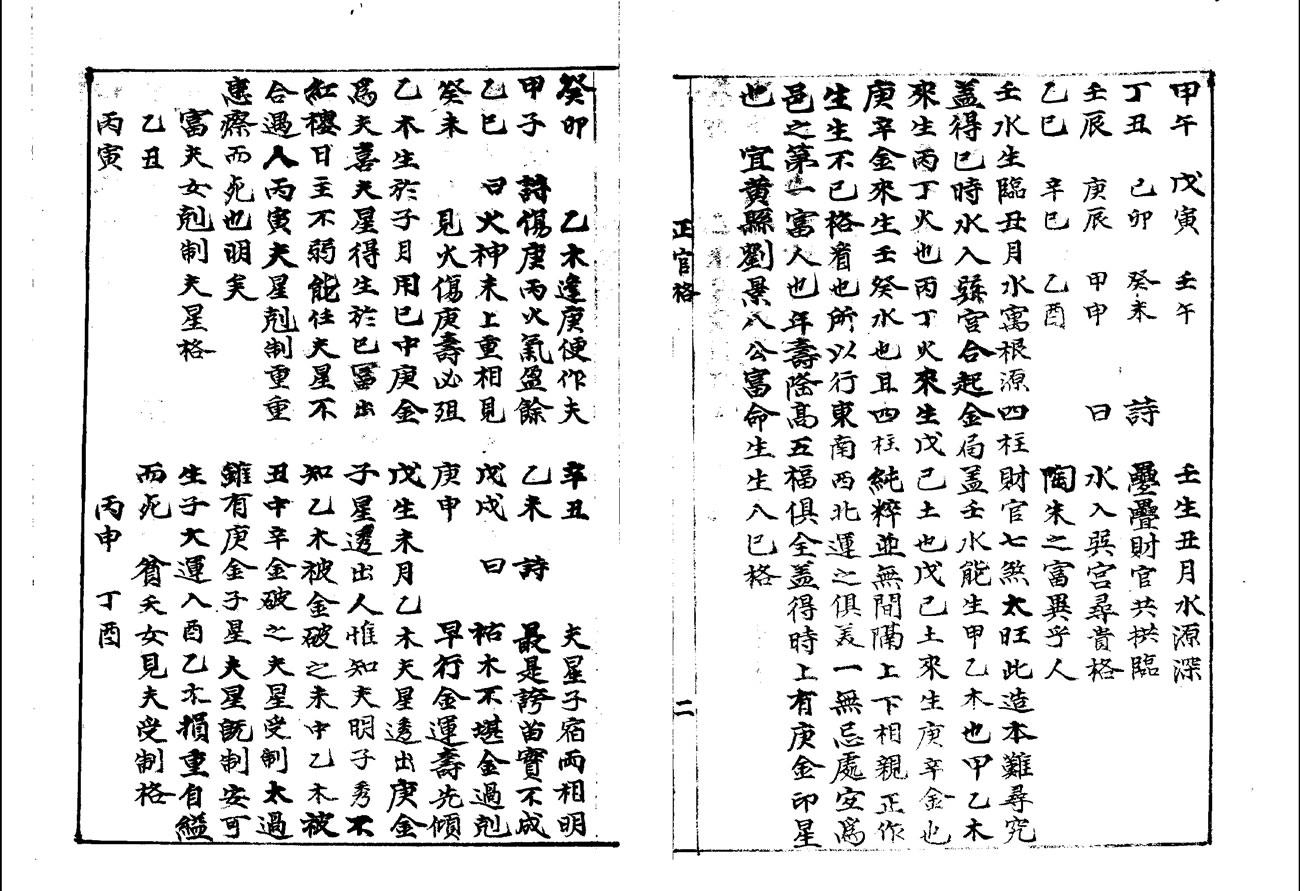 甲午　戊寅　壬午　　　壬生丑月水源深
丁丑　己卯　癸未　詩　壘疊財官共拱臨
壬辰　庚辰　甲申　曰　水入巽宮尋貴格
乙巳　辛巳　乙酉　　　陶朱之富異乎人
壬水生臨丑月水寓根源四柱財官七煞太旺此造本難尋究
蓋得巳時水入巽宮合起金局蓋壬水能生甲乙木也甲乙木
來生丙丁火也丙丁火來生戊己土也戊己土來生庚辛金也
庚辛金來生壬癸水也且四柱純粹並無間隔上下相親正作
生生不已格看也所以行東南西北運之俱美一無忌處宜為
邑之第一富人也年壽隆高五福俱全蓋得時上有庚金印星
也　宜黄縣劉景八公富命生生入巳格
正官格　二
癸卯　　　乙木逢庚便作夫
甲子　詩　傷庚丙火氣盈餘
乙巳　曰　火神未上重相見
癸未　　　見火傷庚壽必殂
乙木生於子月用巳中庚金
為夫喜夫星得生於巳冨出
紅樓日主不弱能任夫星不
合過人丙寅夫星剋制重重
患瘵而死也明矣
富夫女剋制夫星格
乙丑
丙寅
辛丑　　　夫星子宿兩相明
乙未　詩　最是誇苗寶不成
戊戌　曰　祜木不堪金過剋
庚申　　　早行金運壽先傾
戊生未月乙木夫星透出庚金
子星透出人惟知夫明子秀不
知乙木被金破之未中乙木被
丑中辛金破之夫星受制太過
雖有庚金子星夫星既制安可
生子大運入酉乙木損重自縊
而死　貧夭女見夫受制格
丙申　丁酉